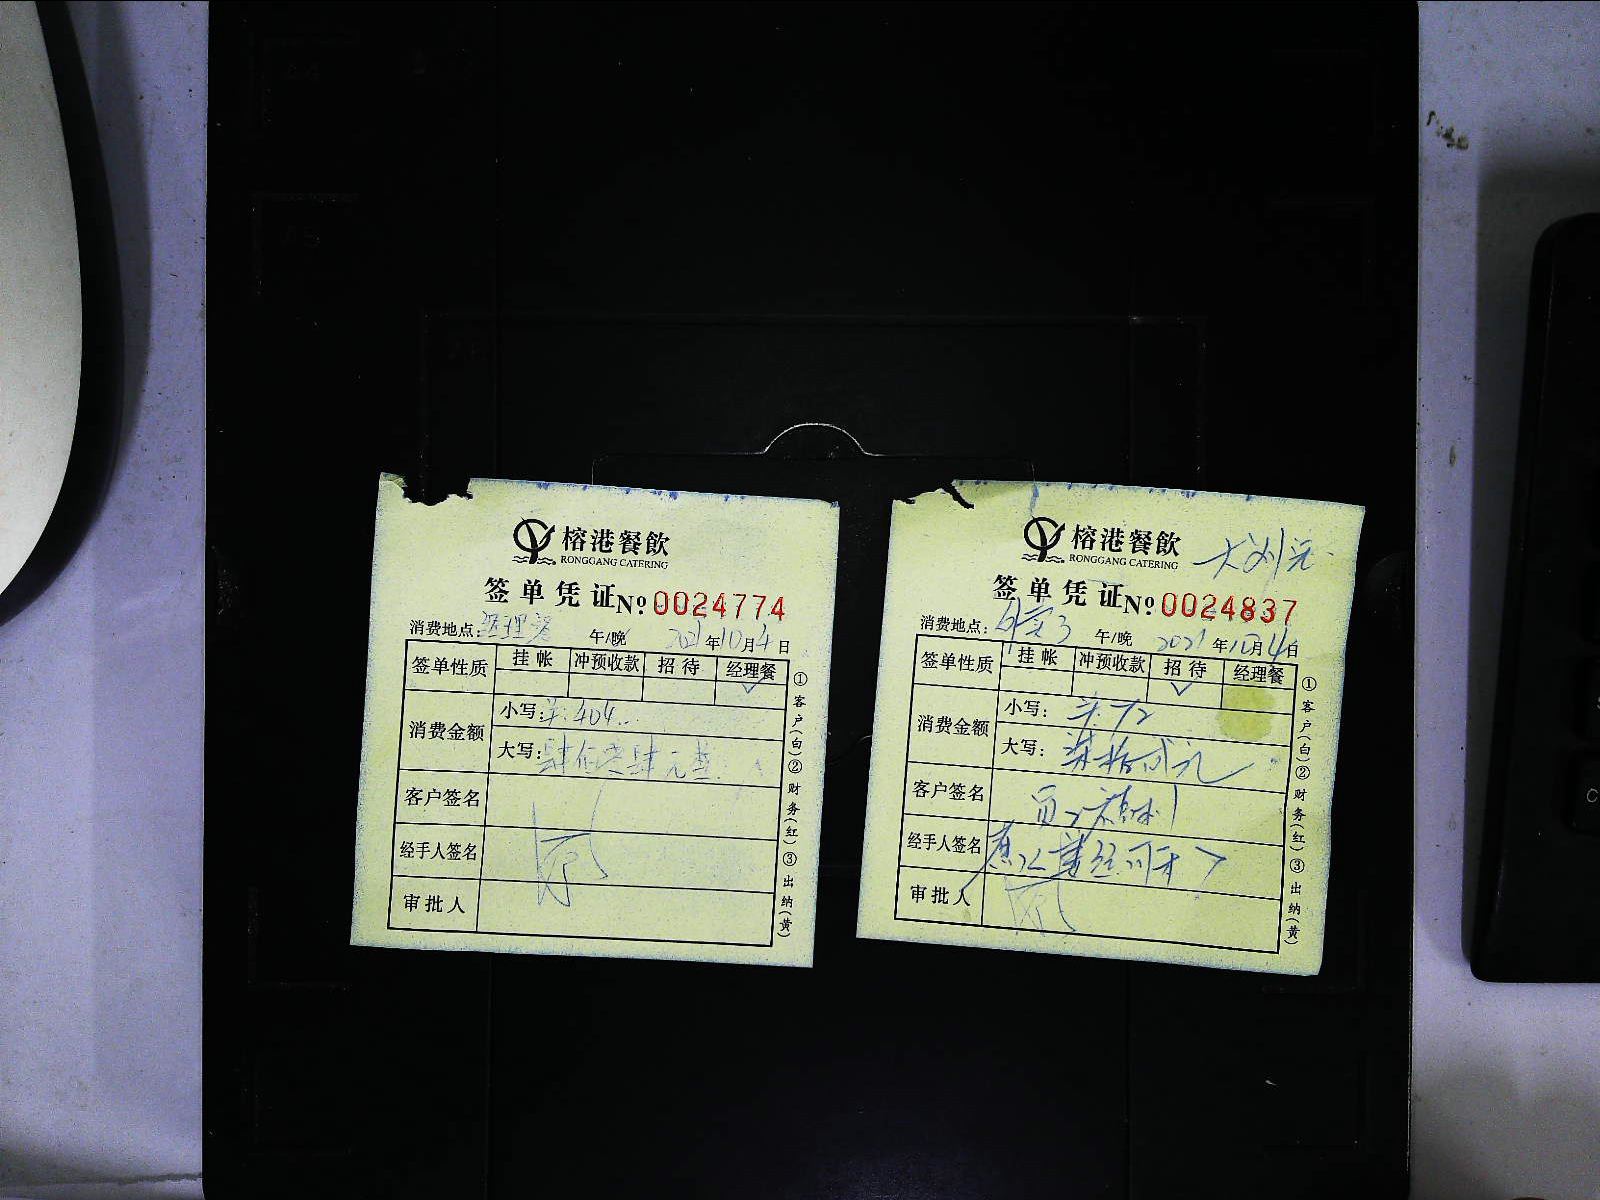 榕港餐飲
RONGGANG CATERING
签单凭证 № 0024774
消费地点: 经理餐 午/晚 2021年10月4日
签单性质 挂帐 冲预收款 招待 经理餐
✓
消费金额
小写: 404
大写: 肆佰零肆元整
客户签名
经手人签名
审批人
①客户(白)②财务(红)③出纳(黄)
榕港餐飲
RONGGANG CATERING
签单凭证 № 0024837
消费地点: 午/晚 2021年10月4日
签单性质 挂帐 冲预收款 招待 经理餐
✓
消费金额
小写: 72
大写: 柒拾贰元
客户签名
经手人签名
审批人
①客户(白)②财务(红)③出纳(黄)